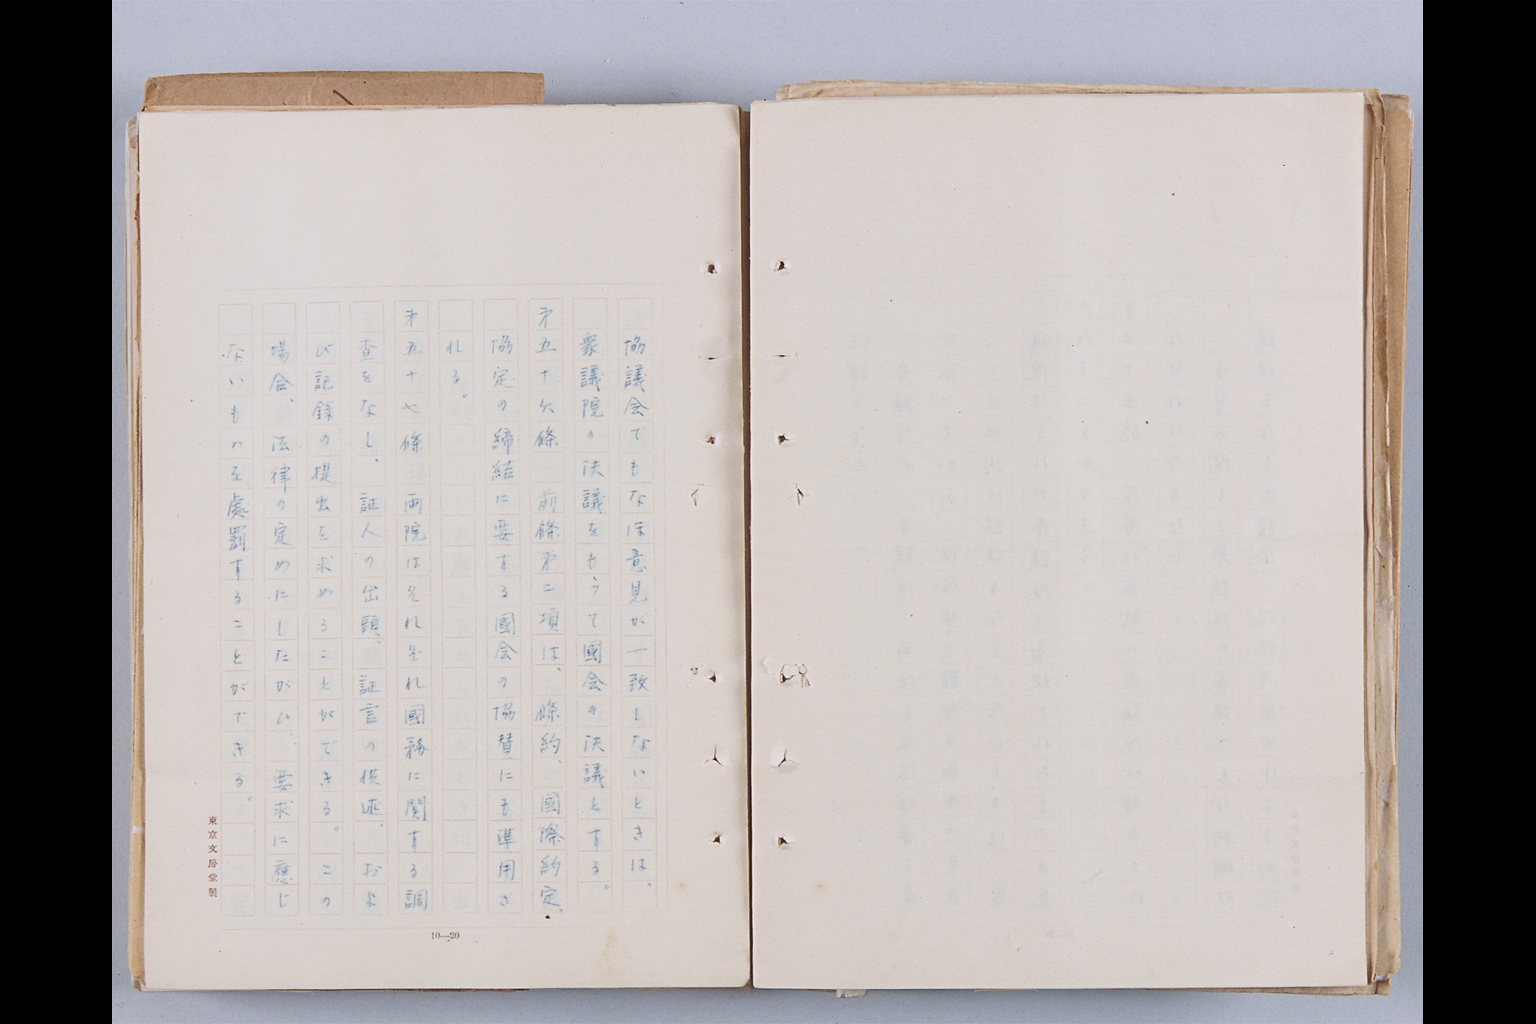 協議会でもなほ意見が一致しないときは、
衆議院の決議をもつて國会の決議とする。
第五十六條 前條第二項は、條約、國際約定、
協定の締結に要する國会の協賛にも準用さ
れる。
第五十七條 両院はそれぞれ國務に関する調
査をなし、証人の出頭、証言の供述、およ
び記録の提出を求めることができる。この
場合、法律の定めにしたがひ、要求に應じ
ないものを處罰することができる。
東京文房堂製
10—20